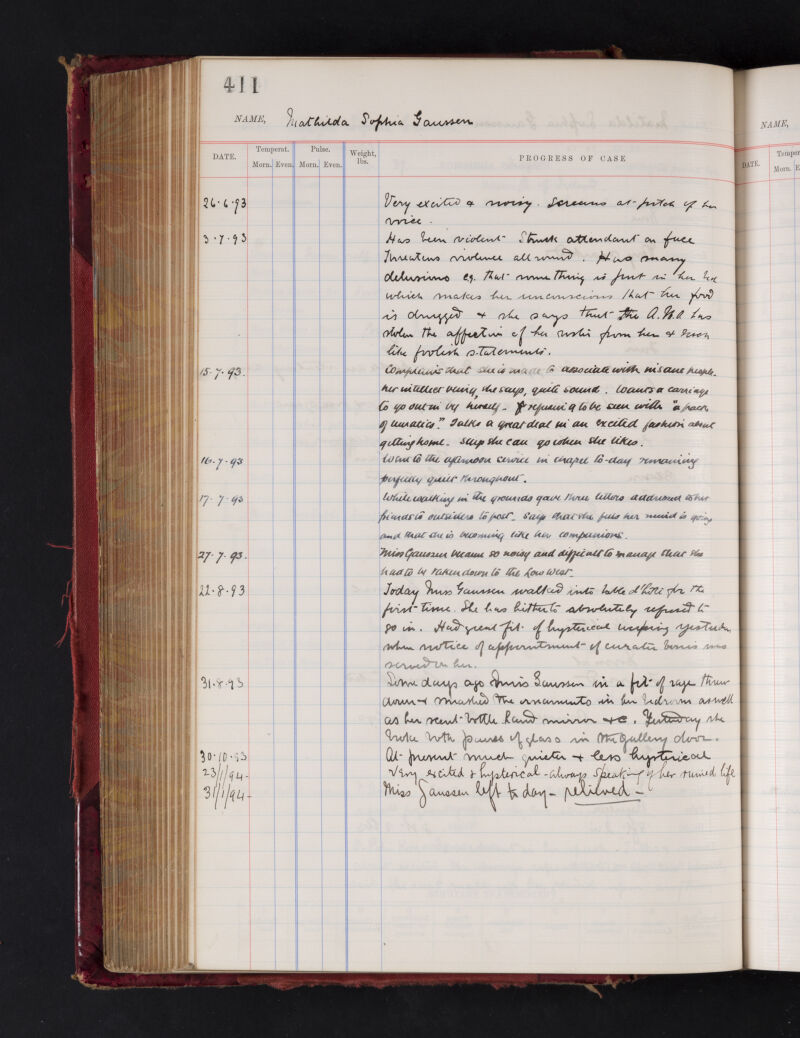 411
NAME, Mathilda Sophia Gaussen
NAME,
DATE.
Temperat.
Morn. Even.
Pulse.
Morn. Even.
Weight, lbs.
PROGRESS OF CASE
DATE.
Temper
Morn. E
26·6·93 Very excited & noisy. Screams at pitch of her
voice.
3·7·93 Has been violent. Struck attendant on face
Threatens violence all round. Has many
delusions eg. that something is put in her
which makes her unconscious that her food
is drugged & she says that the A.M.O has
stolen the affection of her sister from her & such
like foolish statements.
15·7·93. Complains that she is made to associate with insane people.
her intellect being, she says, quite sound. Wants a carriage
to go out in by herself - refusing to be seen with "a pack
of lunatics." Talks a great deal in an excited fashion about
getting home. Says she can go when she likes.
16·7·93 Went to the afternoon service in chapel to-day remaining
perfectly quiet throughout.
17·7·93 While walking in the grounds gave three letters addressed to her
friends to outsiders to post. Says that she feels her mind is going
and that she is becoming like her companions.
27·7·93. Miss Gaussen became so noisy and difficult to manage that she
had to be taken down to the Low West.
22·8·93 Today Miss Gaussen walked into table d'hote for the
first time. She has hitherto absolutely refused to
go in. Had great fit of hysterical weeping yesterday
when notice of appointment of curator bonis was
served on her.
31·8·93 Some days ago Miss Gaussen in a fit of rage threw
down & smashed the ornaments in her bedroom as well
as her scent bottle hand mirror &c. Yesterday she
broke both panes of glass in the gallery door.
30·10·93 At present much quieter & less hysterical
23/1/94- Very excited & hysterical - always speaking of her ruined life
31/1/94- Miss Gaussen left to day - relieved -